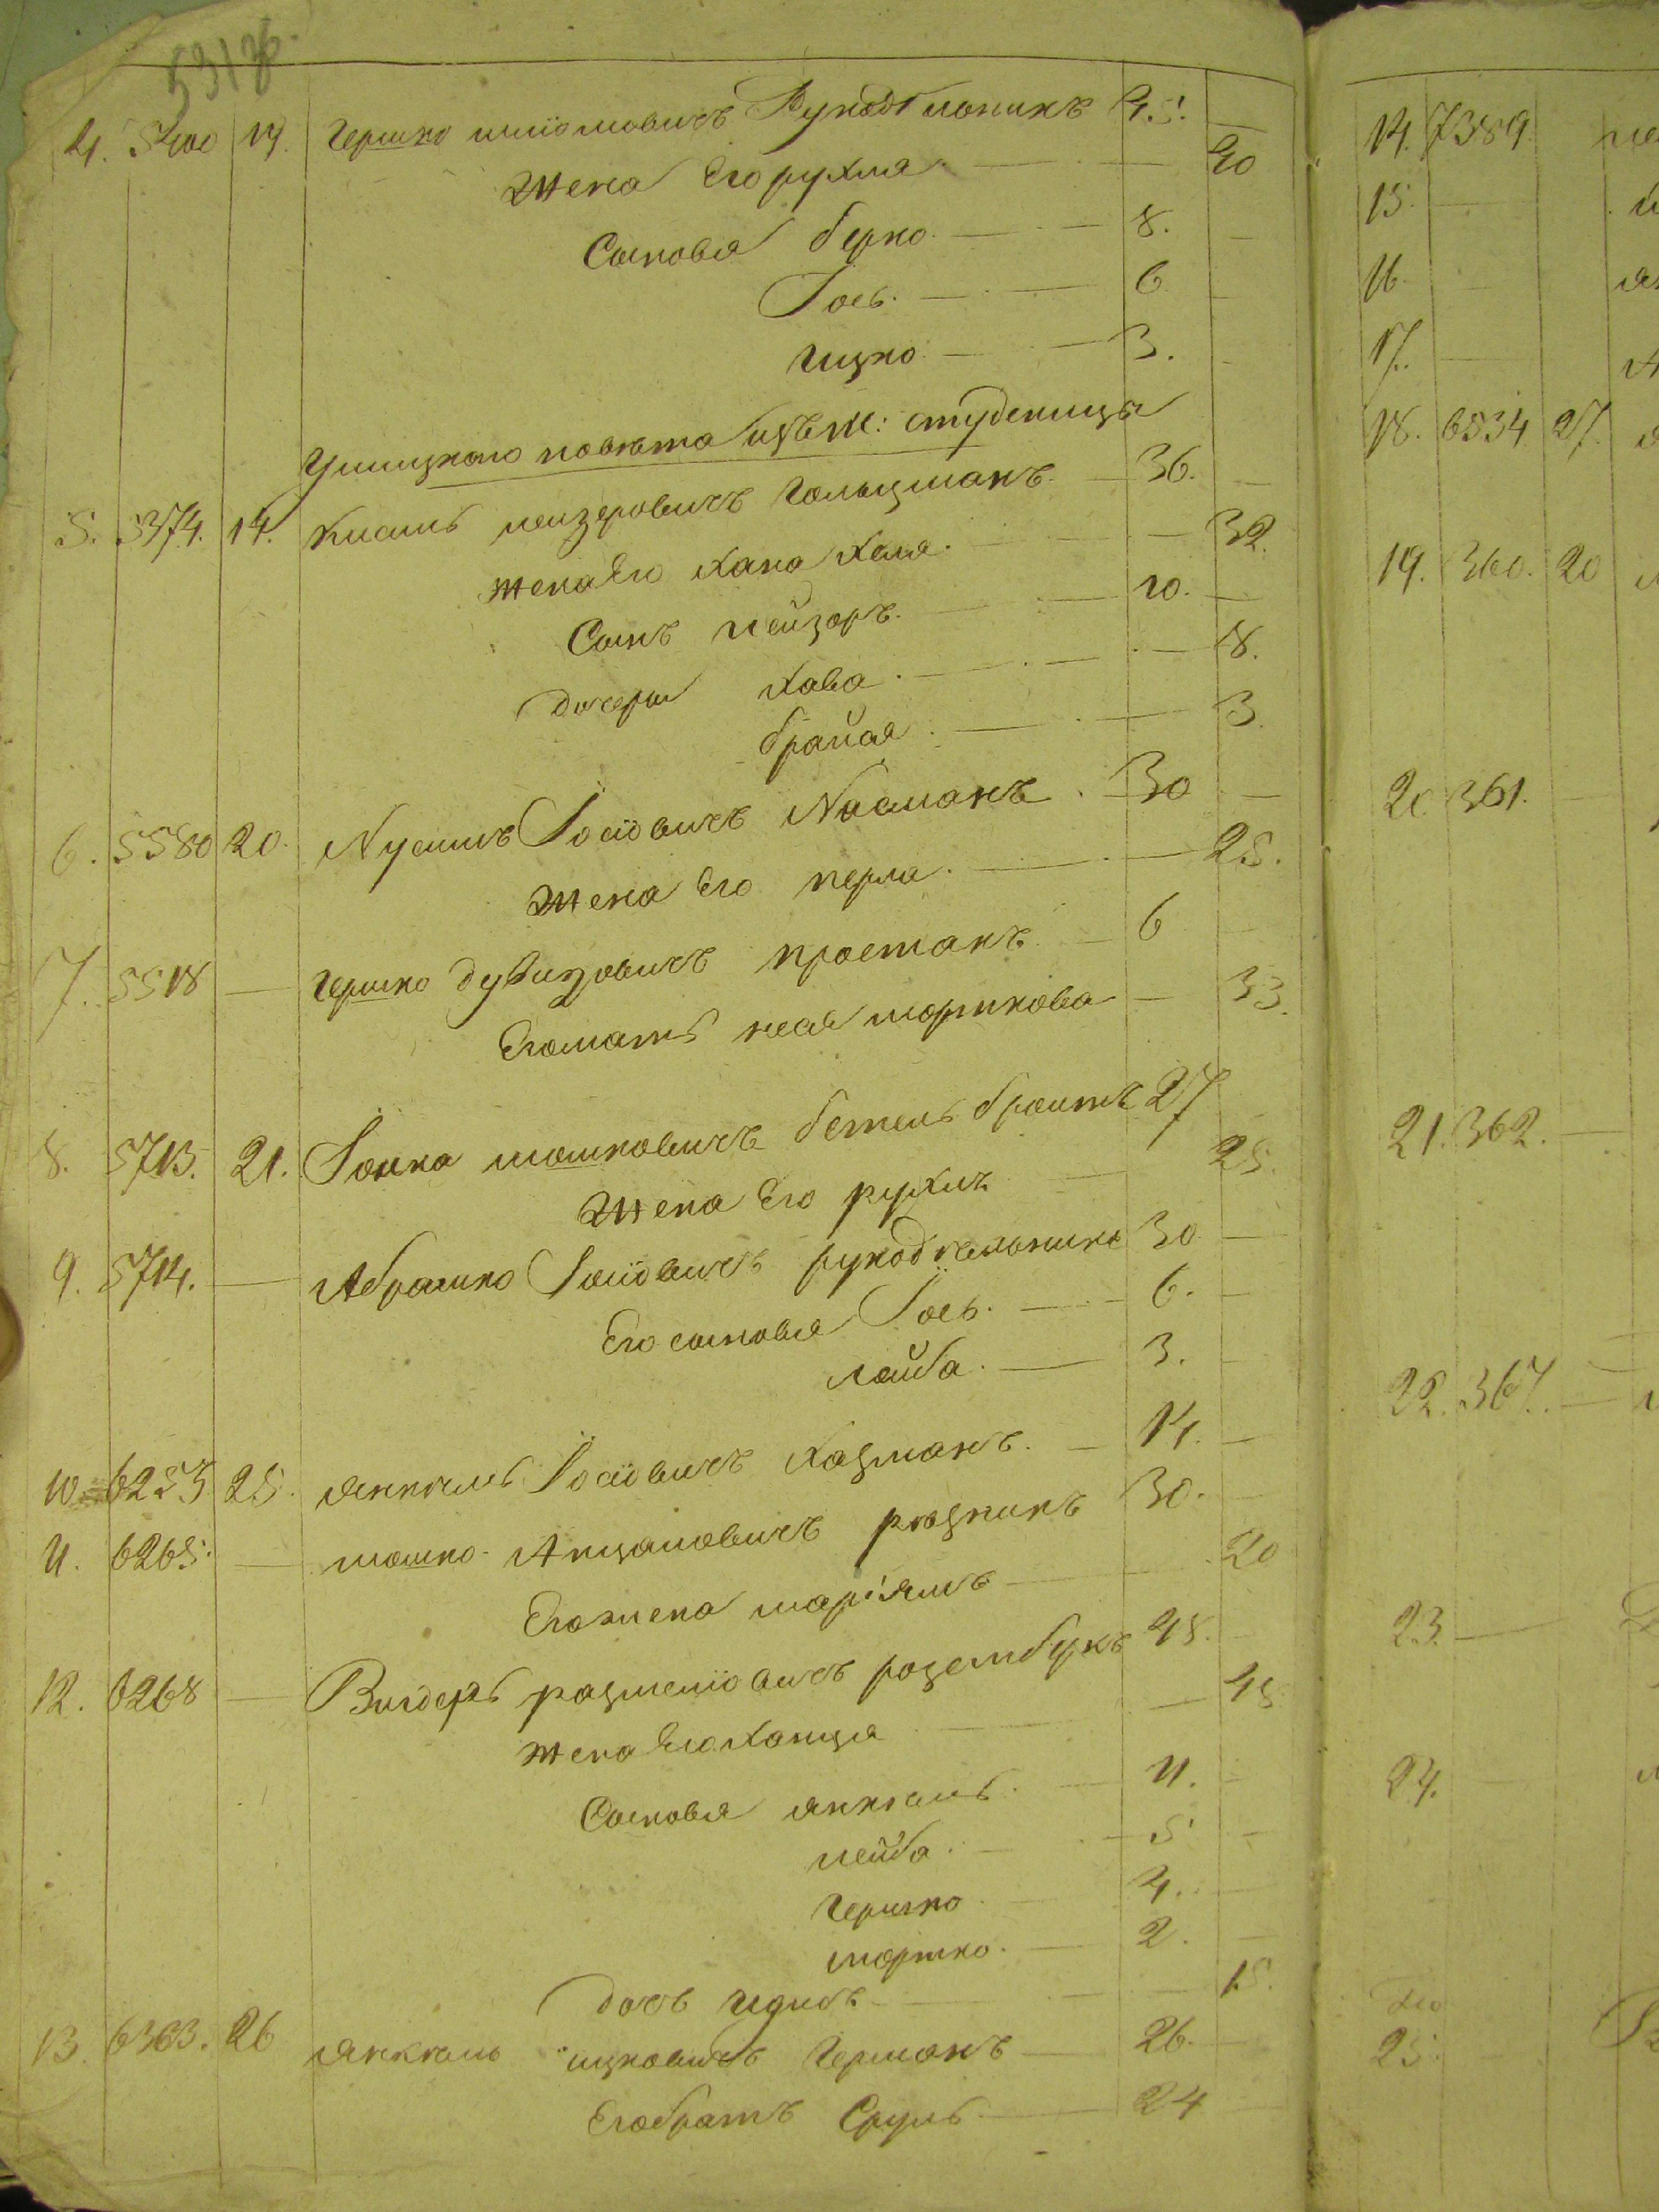 531 об.
4. 5400 19. Гершко шліомовичъ Рукодѣльникъ 45.
Жена Его рухля 40
Сыновья берко 8.
Іось 6
ицко 3.
Ушицкого повѣта изъ м: студеницы
5. 5374. 14. Кисиль лейзеровичъ Гольцманъ 36.
жена Его Хана Хая 32.
Сынъ Лейзоръ 10.
дочери Хава 8.
брайна 3.
6. 5580 20. Нусимъ Іосіовичъ Насманъ 30
Жена Его перла 25.
7. 5518 — Гершко дувидовичъ простакъ 6
Его мать нехая моршкова 33.
8. 5713. 21. Іойна мошковичъ бетельбраитъ 27
Жена Его рухля 25.
9. 5714. — Абрашко Іосіовичъ рукодѣльникъ 30
Его сыновья Іось. 6.
лейба. 3.
10. 6255 25. янкель Іосіовичъ Кацманъ. 14.
11. 6265. — мошко Анцаловичъ рѣзникъ 30.
Его жена маріямъ 20
12. 6268 — Вигдеръ рахмеліовичъ розембукъ 45.
жена Его Ханця 45
Сыновья янкель 11.
лейба. 5
Гершко 4.
мортко. 2.
дочь идись 15.
13. 6363. 26 янкель ицковичъ Германъ 26.
Его братъ Сруль 24
14. 7389.
15.
16.
17.
18. 6534 27.
19. 360. 20
20. 361.
21. 362.
22. 367.
23.
24.
25.